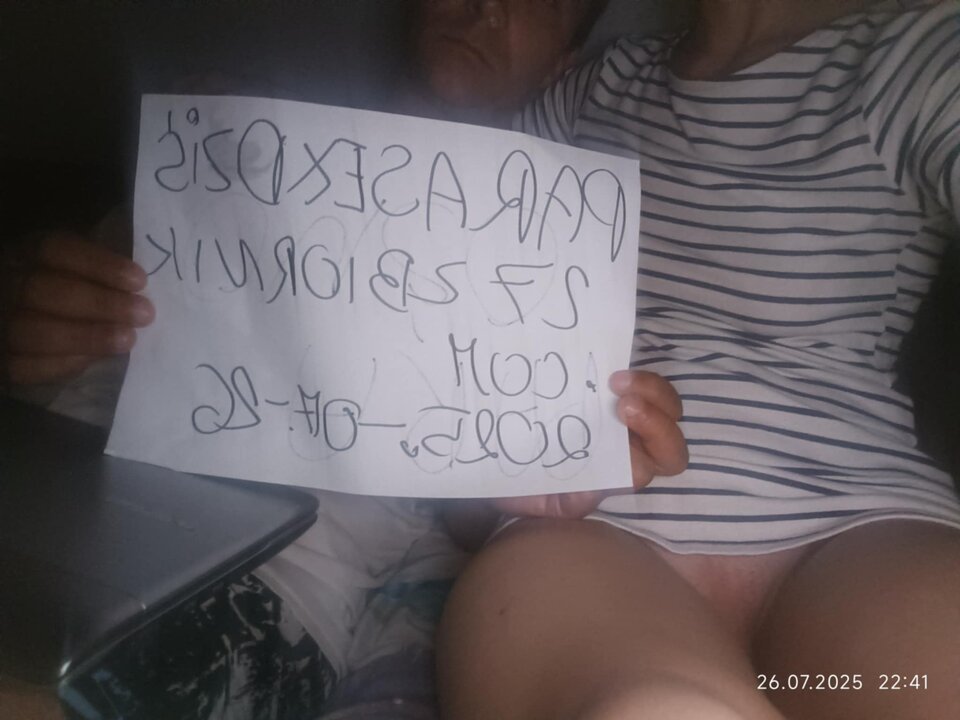 PARASEXDZiś
27 ZBIORNIK
.COM
2025.-07-26
26.07.2025 22:41